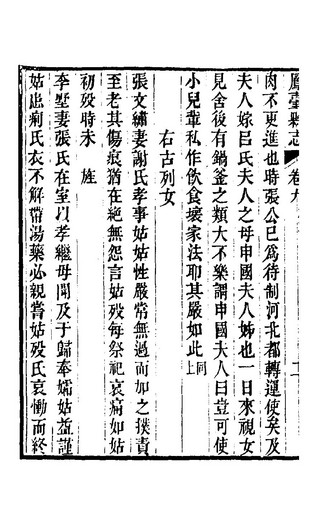 鳳臺縣志 卷九
肉不更進也時張公已爲待制河北都轉運使矣及
夫人嫁呂氏夫人之母申國夫人姊也一日來視女
見舍後有鍋釜之類大不樂謂申國夫人曰豈可使
小兒輩私作飲食壞家法耶其嚴如此同上
右古列女
張文繡妻謝氏孝事姑姑性嚴常無過而加之撲責
至老其傷痕猶在絶無怨言姑歿每祭祀哀痛如姑
初歿時未旌
李墅妻張氏在室以孝繼母聞及于歸奉孀姑益謹
姑患痢氏衣不解帶湯藥必親嘗姑歿氏哀慟而終